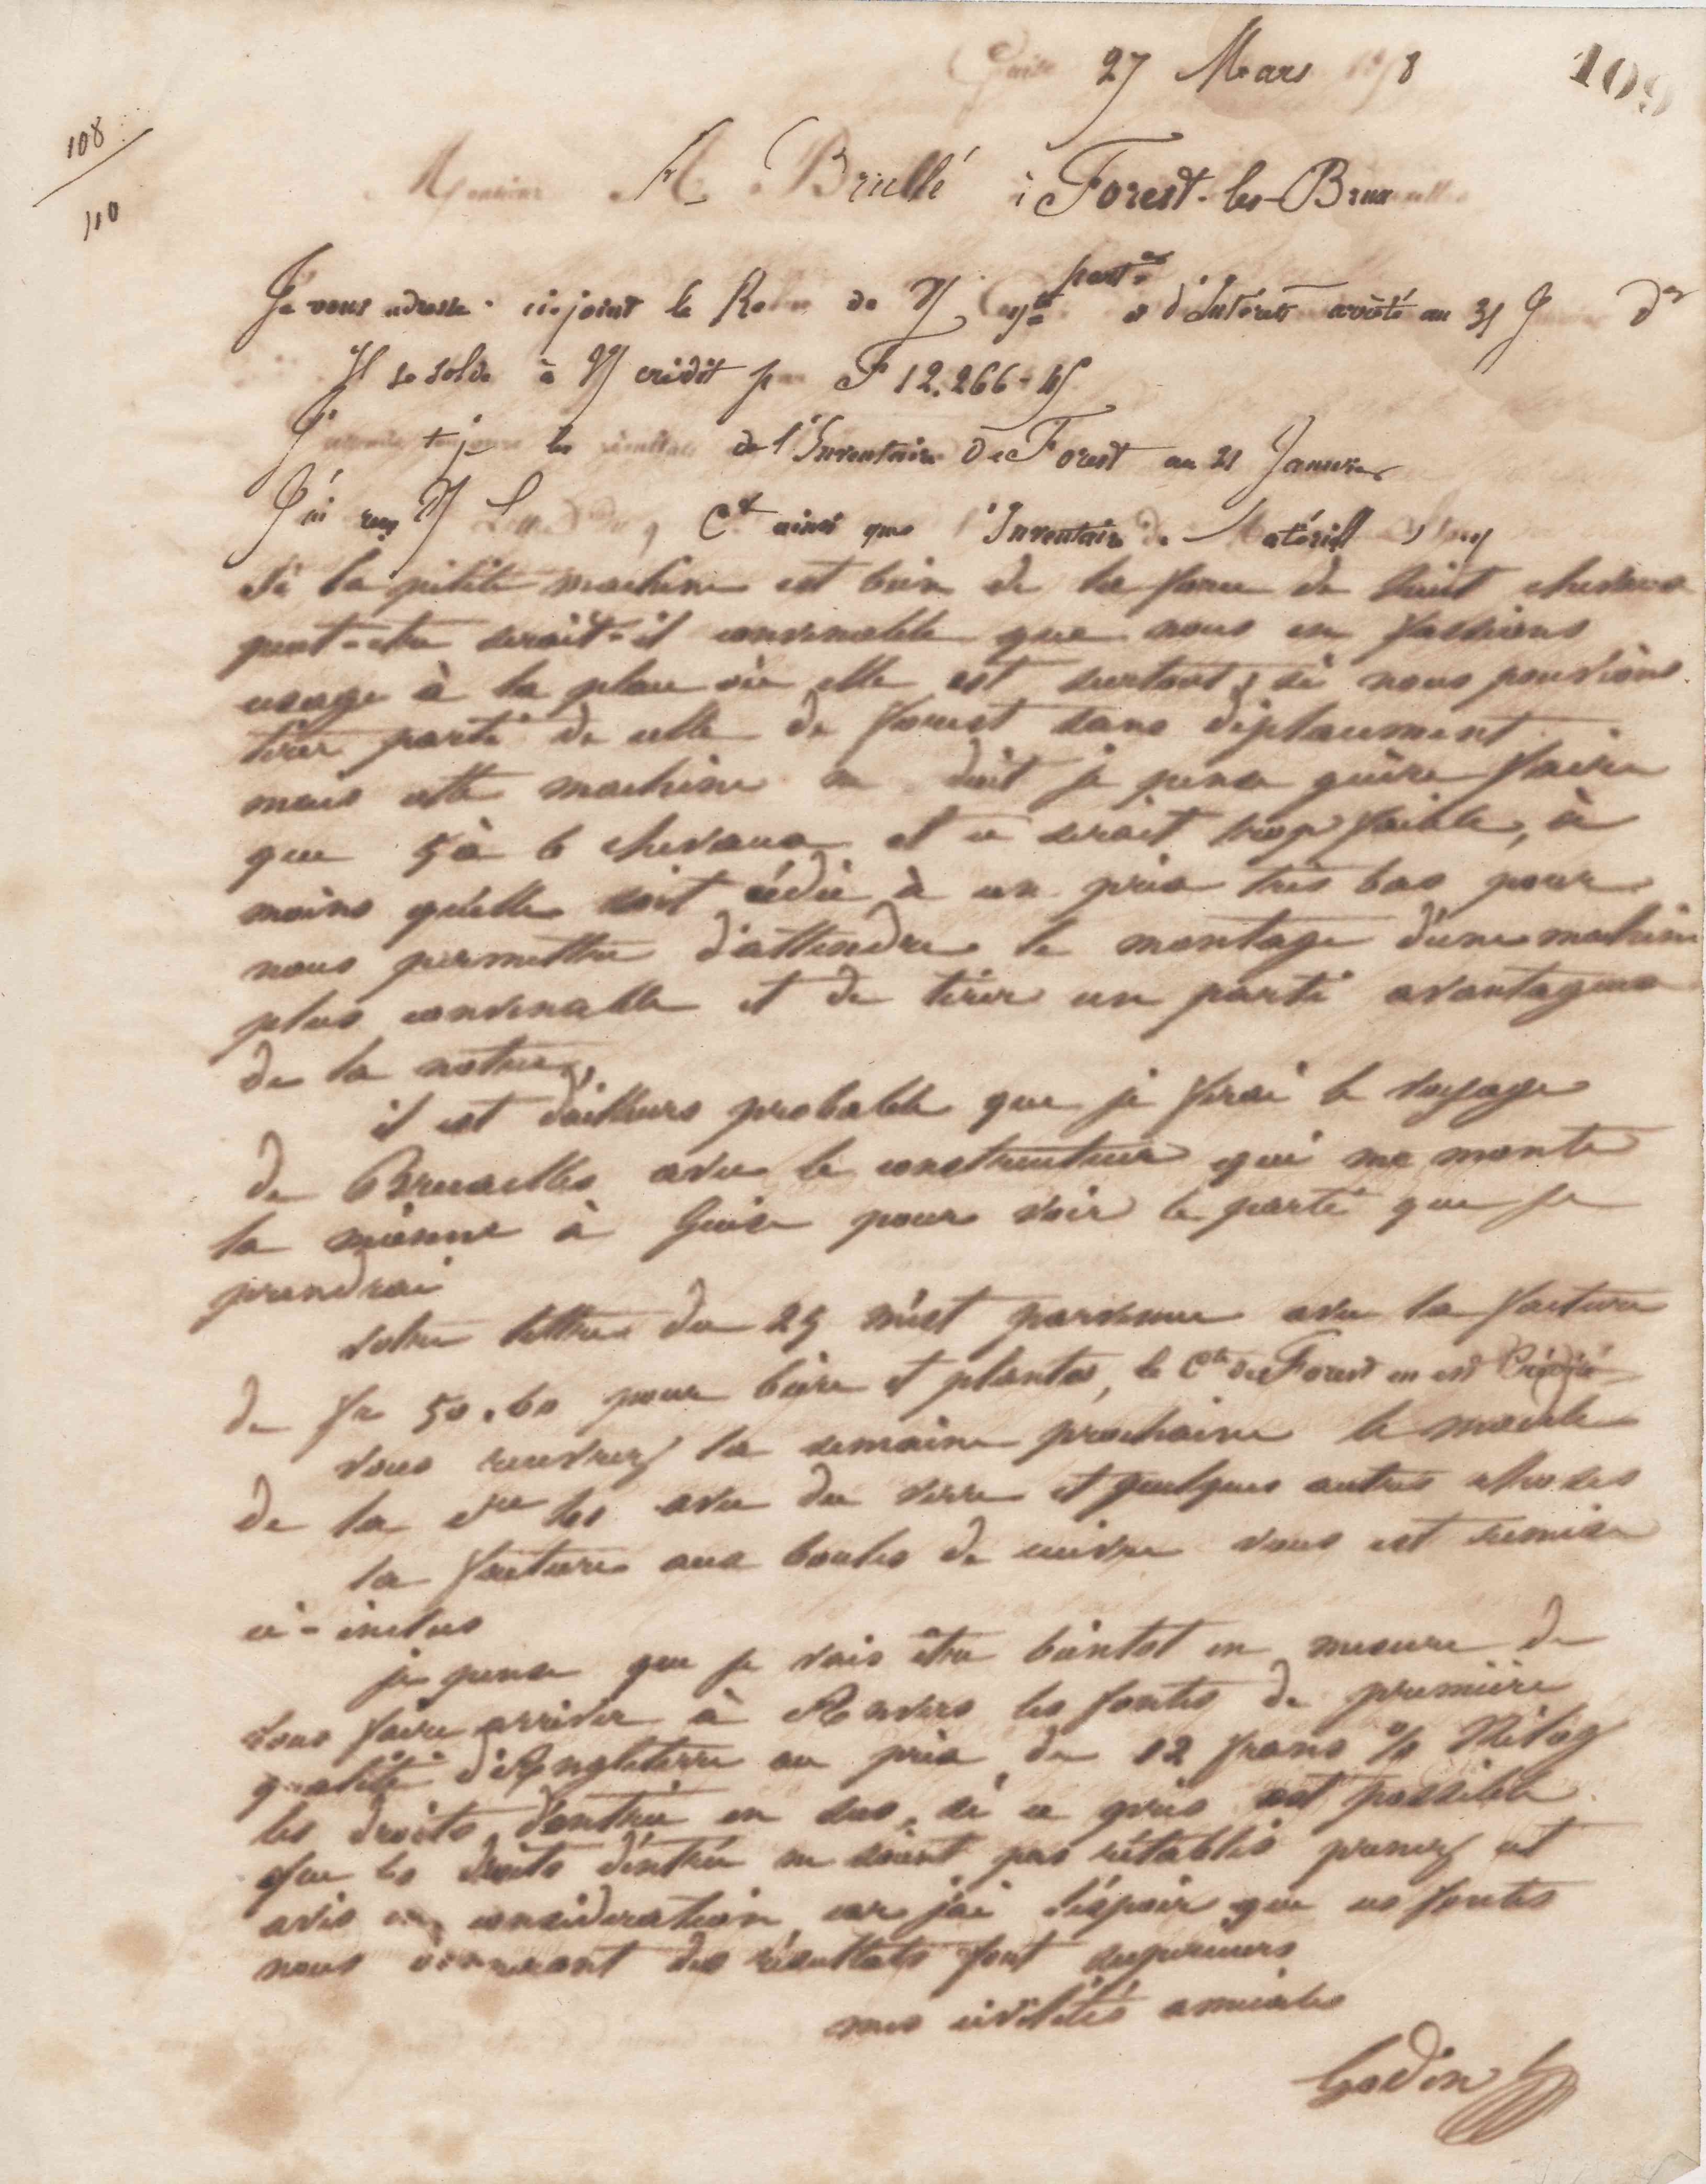 Guise 27 Mars 18 8
109
108
110
Monsieur A Brullé à Forest-les-Bruxelles
part.
Je vous adresse ci-joint le de V et d'Intérêts arrêté au 31 J dr
Il se solde à V/ crédit par F 12.266-45
J'attends tjs les résultats de l'Inventaire de Forest au 31 Janvier
J'ai reçu V/ Ct ainsi que l'Inventaire de Matériel
Si la petite machine est bien de la force de huit chevaux
peut-etre serait-il convenable que nous en fassions
usage à la place où elle est surtout, si nous pouvions
tirer parti de celle de forest sans déplacement
mais cette machine ne doit je pense guère faire
que 5 à 6 chevaux et ce serait trop faible, à
moins qu'elle soit cédée à un prix très bas pour
nous permettre d'attendre le montage d'une machine
plus convenable et de tirer un parti avantageux
de la notre,
il est d'ailleurs probable que je ferai le voyage
de Bruxelles avec le constructeur qui me monte
la mienne à Guise pour voir le parti que je
prendrai
votre lettre du 25 m'est parvenue avec la facture
de fr 50.60 pour bière et plantes, le Cte de Forest en est Crédité
vous recevrez la semaine prochaine le modèle
de la avec du verre et quelques autres choses
la facture aux boules de cuivre vous est remise
ci-inclus
je pense que je vais être bientot en mesure de
vous faire arriver à Anvers les fontes de première
qualité d'Angleterre au prix de 12 francs % Kilog
les droits d'entrée en sus, si ce prix est possible
que les droits d'entrée ne soient pas rétablis prenez cet
avis en considération car j'ai l'éspoir que ces fontes
nous donneront des résultats fort superieurs
mes civilités amicales
Godin